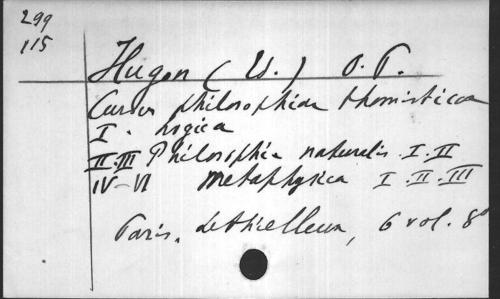 299
115
Hugon (E.) O.P.
Cursus philosophiae thomisticae
I. Logica
II.III Philosophia naturalis I.II
IV-VI metaphysica I.II.III
Paris, Lethielleux, 6 vol. 8°